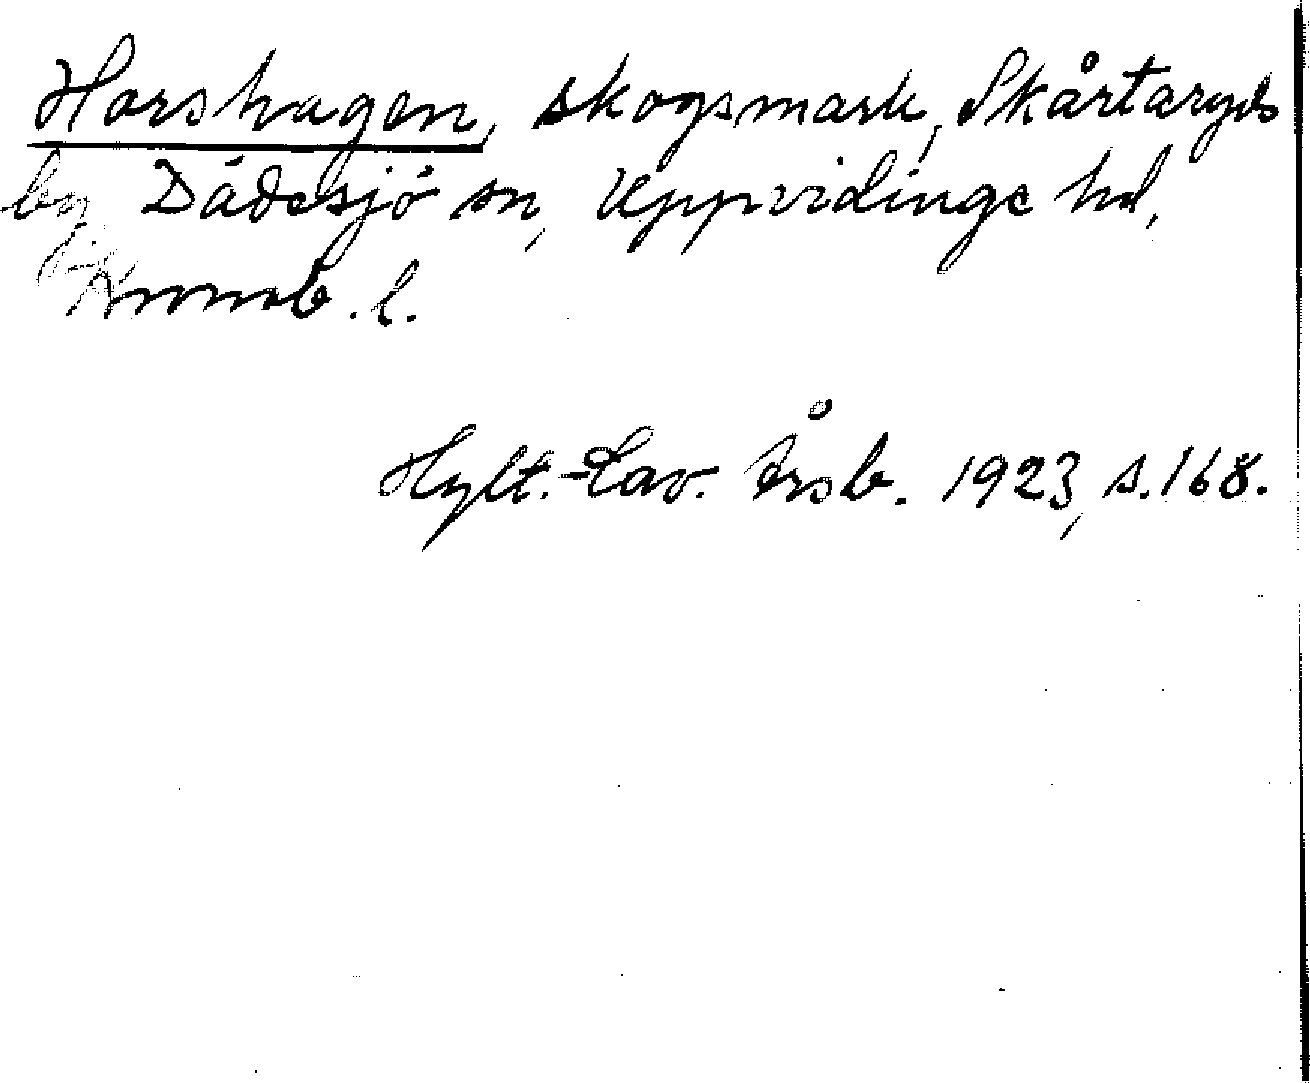 Horshagen, skogsmark, Skårtaryds
by, Dädesjö sn, Uppvidinge hd,
Kronob. l.
Hylt.-Cav. Årsb. 1923, s. 168.